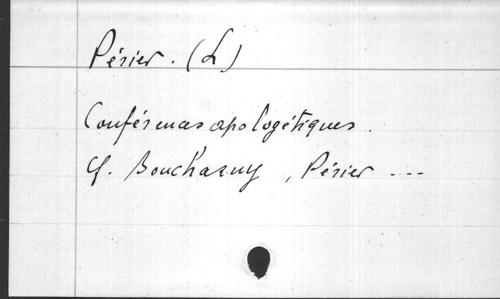 Périer. (L)
Conférences apologétiques.
Cf. Boucharny, Périer ----